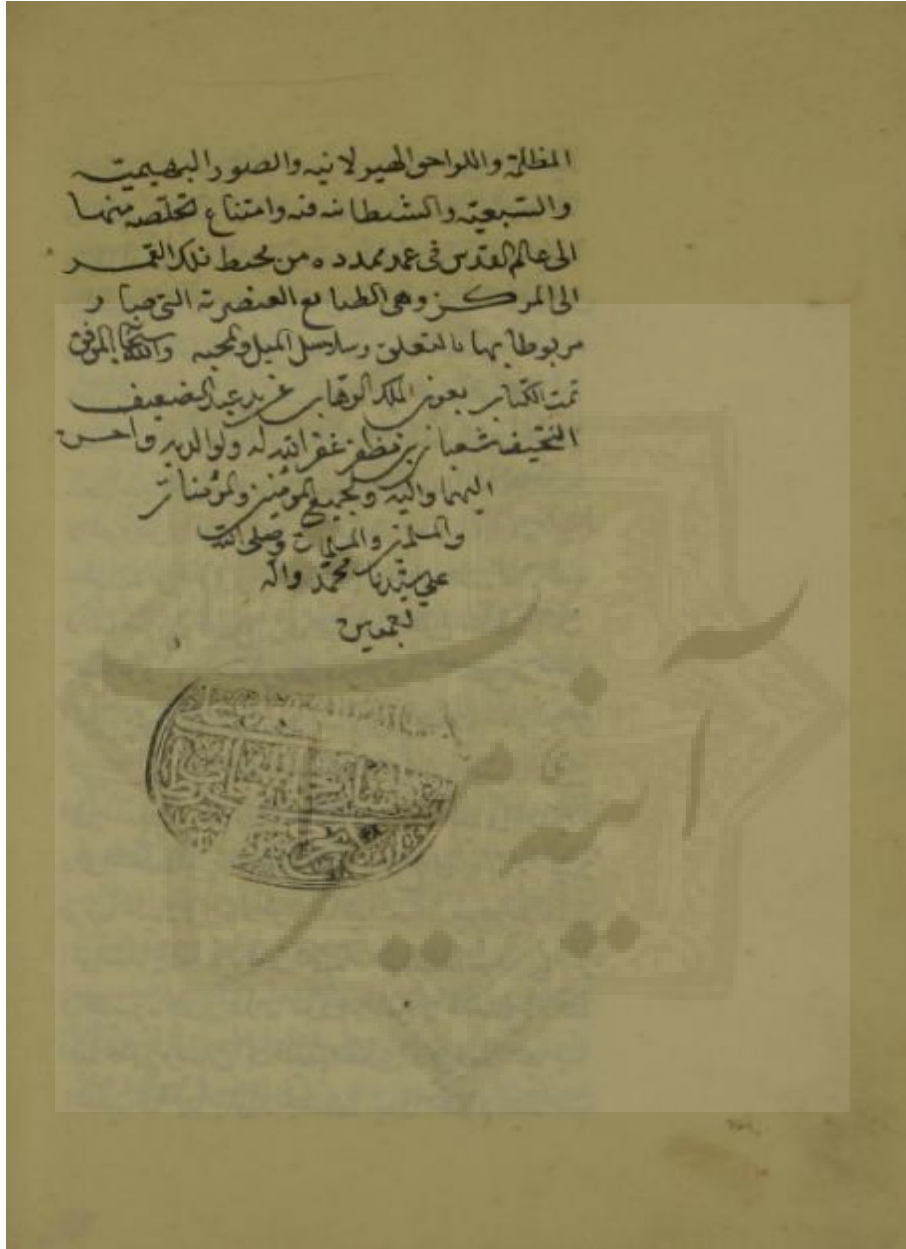 المظلمة واللواحق الهيولانيه والصور البهيميّه
والسّبعيّه والشيطانيه فيه وامتناع تخلّصه منها
الى عالم القدس فى عمد ممدده من محيط فلك القمر
الى المركز وهى الطبايع العنصريّة التى صار
مربوطا بها بالتعلق وسلاسل الميل والمحبه والله الموفق
تمت الكتاب بعون الملك الوهاب عبد الضعيف
النحيف شعبان بن مظفر غفر الله له ولوالديه واحسن
اليهما واليه ولجميع المؤمنين والمؤمنات
والمسلمين والمسلمات وصلى الله
على سيّدنا محمّد واله
اجمعين
آینه میراث